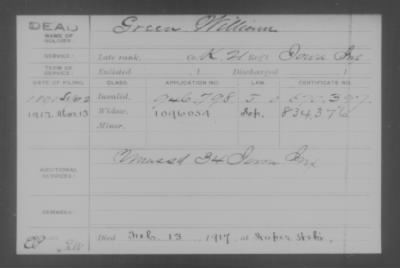 DEAD
NAME OF SOLDIER:
Green William
SERVICE: Late rank, Co. K, 21 Reg't Iowa Inf
TERM OF SERVICE: Enlisted , 1 Discharged , 1
DATE OF FILING. CLASS. APPLICATION NO. LAW. CERTIFICATE NO.
Invalid, 946,798
1917, Mar 13 Widow, 1096054 Sep. 834,376
Minor,
ADDITIONAL SERVICES: 34 Iowa Inf
REMARKS:
Died Feb. 13, 1917, at